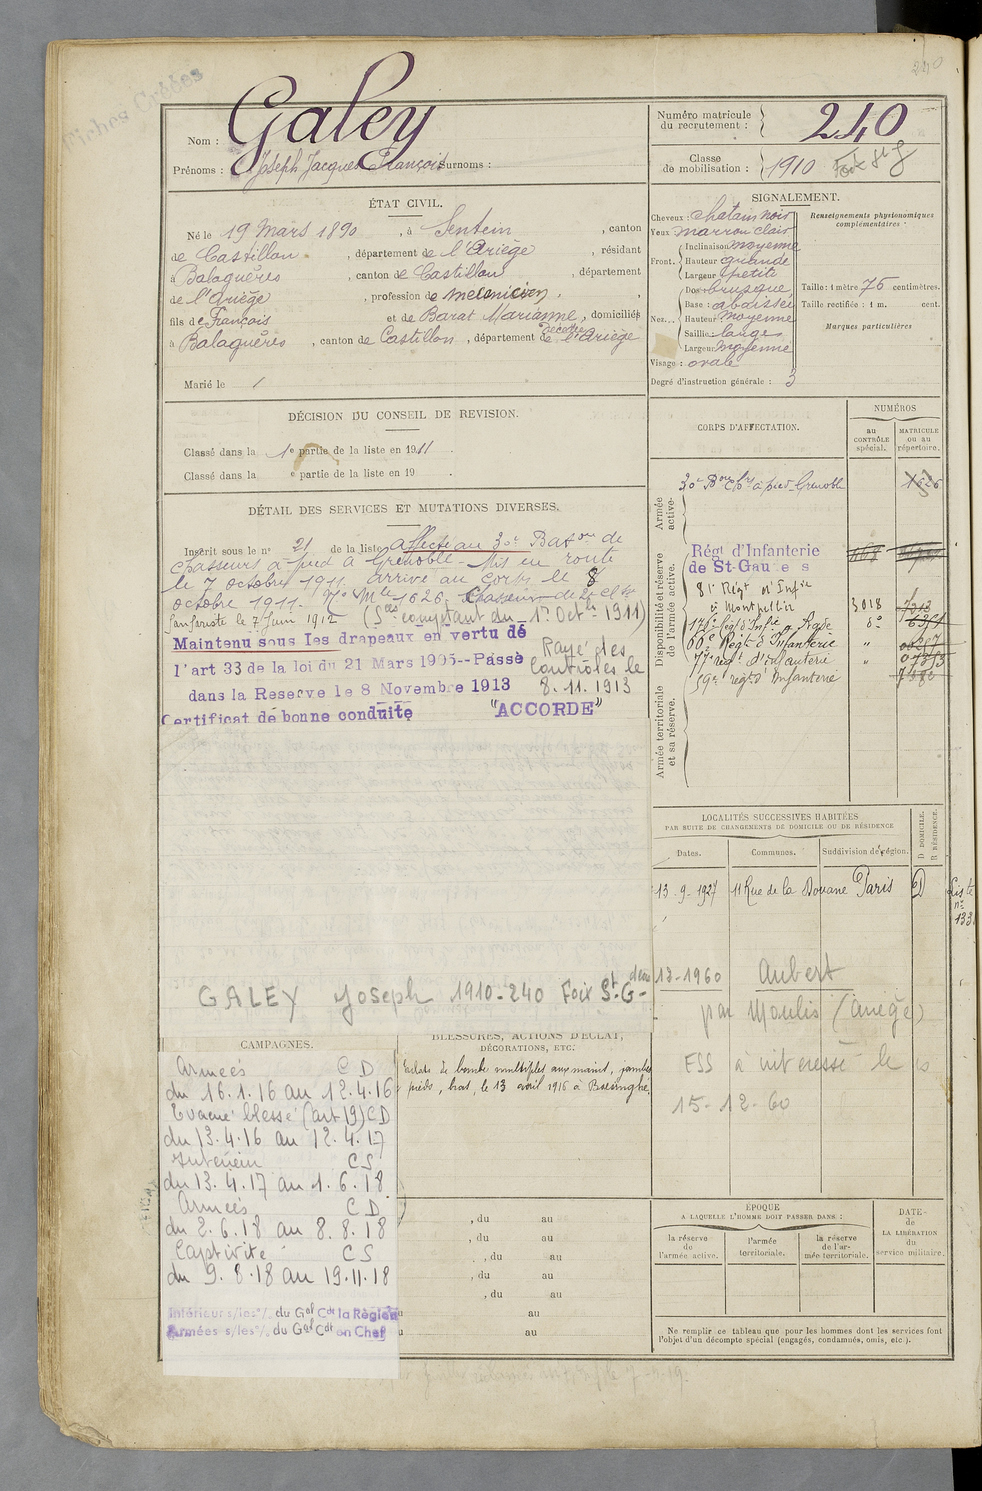 240
Fiches Créées
Nom : Galey
Prénoms : Joseph Jacques François Surnoms :
Numéro matricule
du recrutement : 240
Classe
de mobilisation : 1910 Foix St G
ÉTAT CIVIL.
Né le 19 Mars 1890, à Sentein, canton
de Castillon, département de l'Ariège, résidant
à Balaguères, canton de Castillon, département
de l'Ariège, profession de mécanicien,
fils de François et de Barat Marianne, domiciliés
décédée
à Balaguères, canton de Castillon, département de l'Ariège
Marié le /
SIGNALEMENT.
Cheveux : chatain noir
Yeux marron clair
Front. Inclinaison moyenne
Hauteur grande
Largeur petite
Nez... Dos : brusque
Base : abaissée
Hauteur moyenne
Saillie : large
Largeur moyenne
Visage : ovale
Degré d'instruction générale : 3
Renseignements physionomiques
complémentaires .
Taille : 1 mètre 75 centimètres.
Taille rectifiée : 1 m. cent.
Marques particulières
DÉCISION DU CONSEIL DE REVISION.
Classé dans la 1e partie de la liste en 1911.
Classé dans la e partie de la liste en 19 .
DÉTAIL DES SERVICES ET MUTATIONS DIVERSES.
Inscrit sous le no 21 de la liste affecté au 30e Baton de
chasseurs à pied à Grenoble - Mis en route
le 7 octobre 1911. arrivé au corps le 8
octobre 1911. No Mle 1626. Chasseur de 2e cl.
fanfariste le 7 Juin 1912 (Sces comptant du 1er Octbre 1911)
Maintenu sous les drapeaux en vertu de
l'art 33 de la loi du 21 Mars 1905--Passé
dans la Reserve le 8 Novembre 1913
Certificat de bonne conduite "ACCORDE"
Rayé des
contrôles le
8.11.1913
CORPS D'AFFECTATION.
NUMÉROS
au
CONTRÔLE
spécial.
MATRICULE
ou au
répertoire.
Armée
active.
30e Bon Chrs à pied Grenoble 1626
Disponibilité et réserve
de l'armée active.
Régt d'Infanterie
de St-Gaudens
81e Régt d'Infie
à Montpellier 3018
Régt d'Infie Agde do
Régt d'Infanterie "
77e régt d'infanterie "
59e régt d'Infanterie
Armée territoriale
et sa réserve.
LOCALITÉS SUCCESSIVES HABITÉES
PAR SUITE DE CHANGEMENTS DE DOMICILE OU DE RÉSIDENCE
Dates. Communes. Subdivision de région.
D DOMICILE.
R RÉSIDENCE.
13-9-1927 11 Rue de la Douane Paris D
Liste
no
133
12-1960 Aubert
par Moulis (Ariège)
15-12-60
GALEY Joseph 1910-240 Foix St-G-
CAMPAGNES.
Armées CD
du 16.1.16 au 12.4.16
Evacué blessé (art 19) CD
du 13.4.16 au 12.4.17
Intérieur CS
du 13.4.17 au 1.6.18
Armées CD
du 2.6.18 au 8.8.18
Captivité CS
du 9.8.18 au 19.11.18
Intérieur s/les o/. du Gal Cdt la Région
Armées s/les o/. du Gal Cdt en Chef
BLESSURES, ACTIONS D'ÉCLAT,
DÉCORATIONS, ETC.
Eclats de bombe multiples aux mains, jambes
pieds, bras, le 13 avril 1916 à Boesinghe.
, du au
, du au
, du au
, du au
, du au
au
au
ÉPOQUE
A LAQUELLE L'HOMME DOIT PASSER DANS :
la réserve
de
l'armée active.
l'armée
territoriale.
la réserve
de l'ar-
mée territoriale.
DATE
de
LA LIBÉRATION
du
service militaire.
Ne remplir ce tableau que pour les hommes dont les services font
l'objet d'un décompte spécial (engagés, condamnés, omis, etc.).